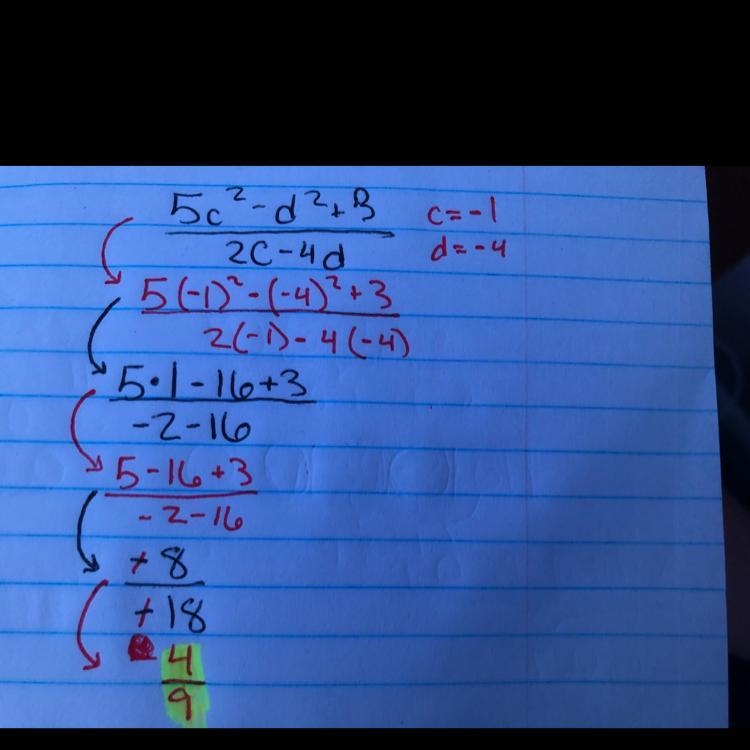 5c² - d² + 3   c = -1
2c - 4d   d = -4
5(-1)² - (-4)² + 3
2(-1) - 4(-4)
5·1 - 16 + 3
-2 - 16
5 - 16 + 3
-2 - 16
+ 8
+ 18
4
9